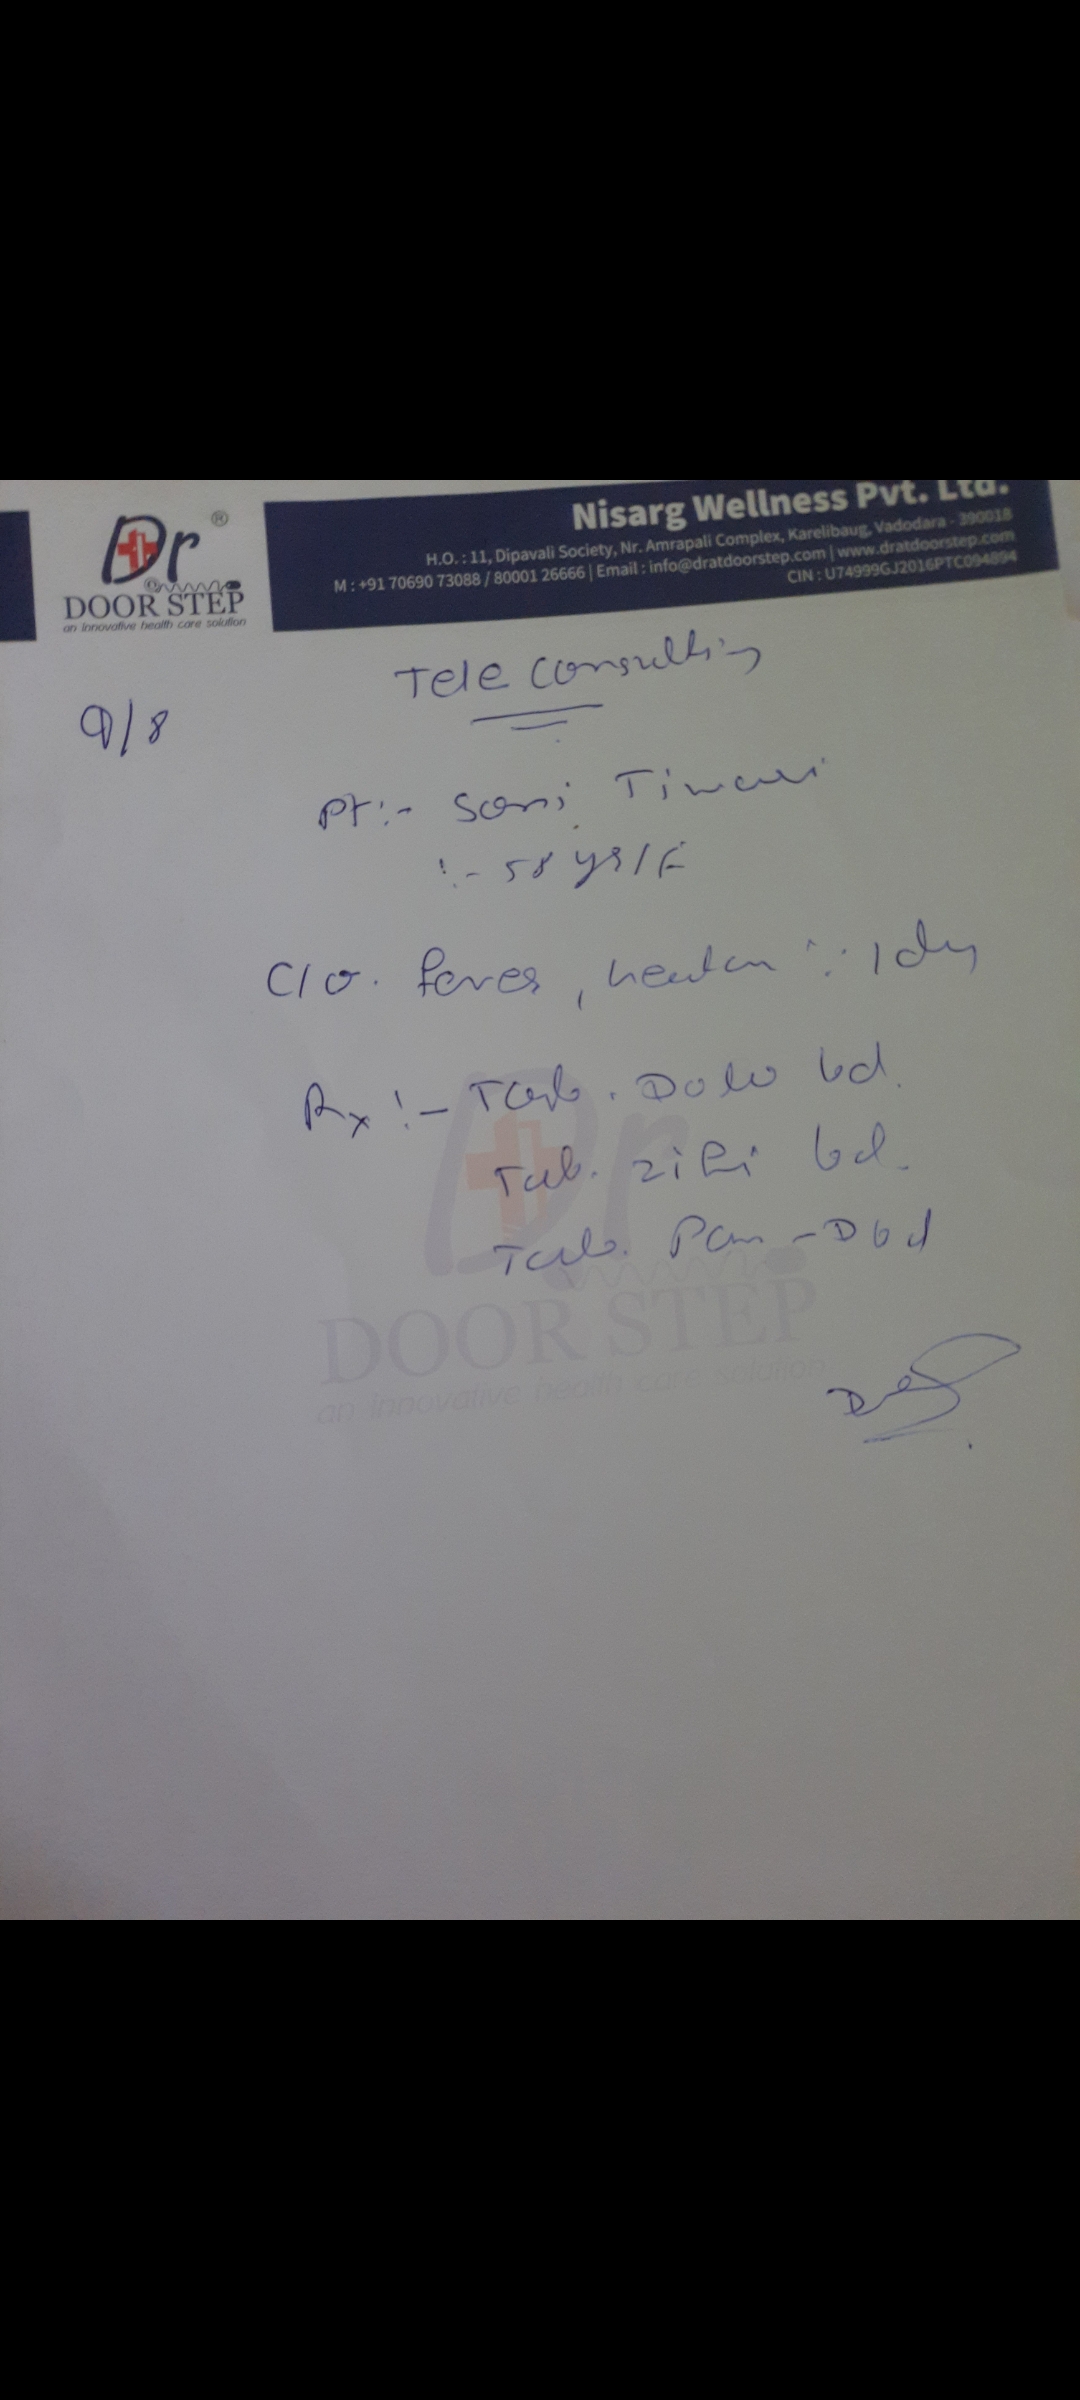 Dr ®
DOOR STEP
an innovative health care solution
Nisarg Wellness Pvt. Ltd.
H.O. : 11, Dipavali Society, Nr. Amrapali Complex, Karelibaug, Vadodara - 390018
M : +91 70690 73088 / 80001 26666 | Email : info@dratdoorstep.com | www.dratdoorstep.com
CIN : U74999GJ2016PTC094894
Tele consulting
9/8
Pt :- Soni Tiwari
:- 58 yrs/F
C/o. fever, :- 1 day
Rx :- Tab. Dolo bd.
Tab. Zifi bd.
Tab. Pan-D bd
Dr
DOOR STEP
an innovative health care solution